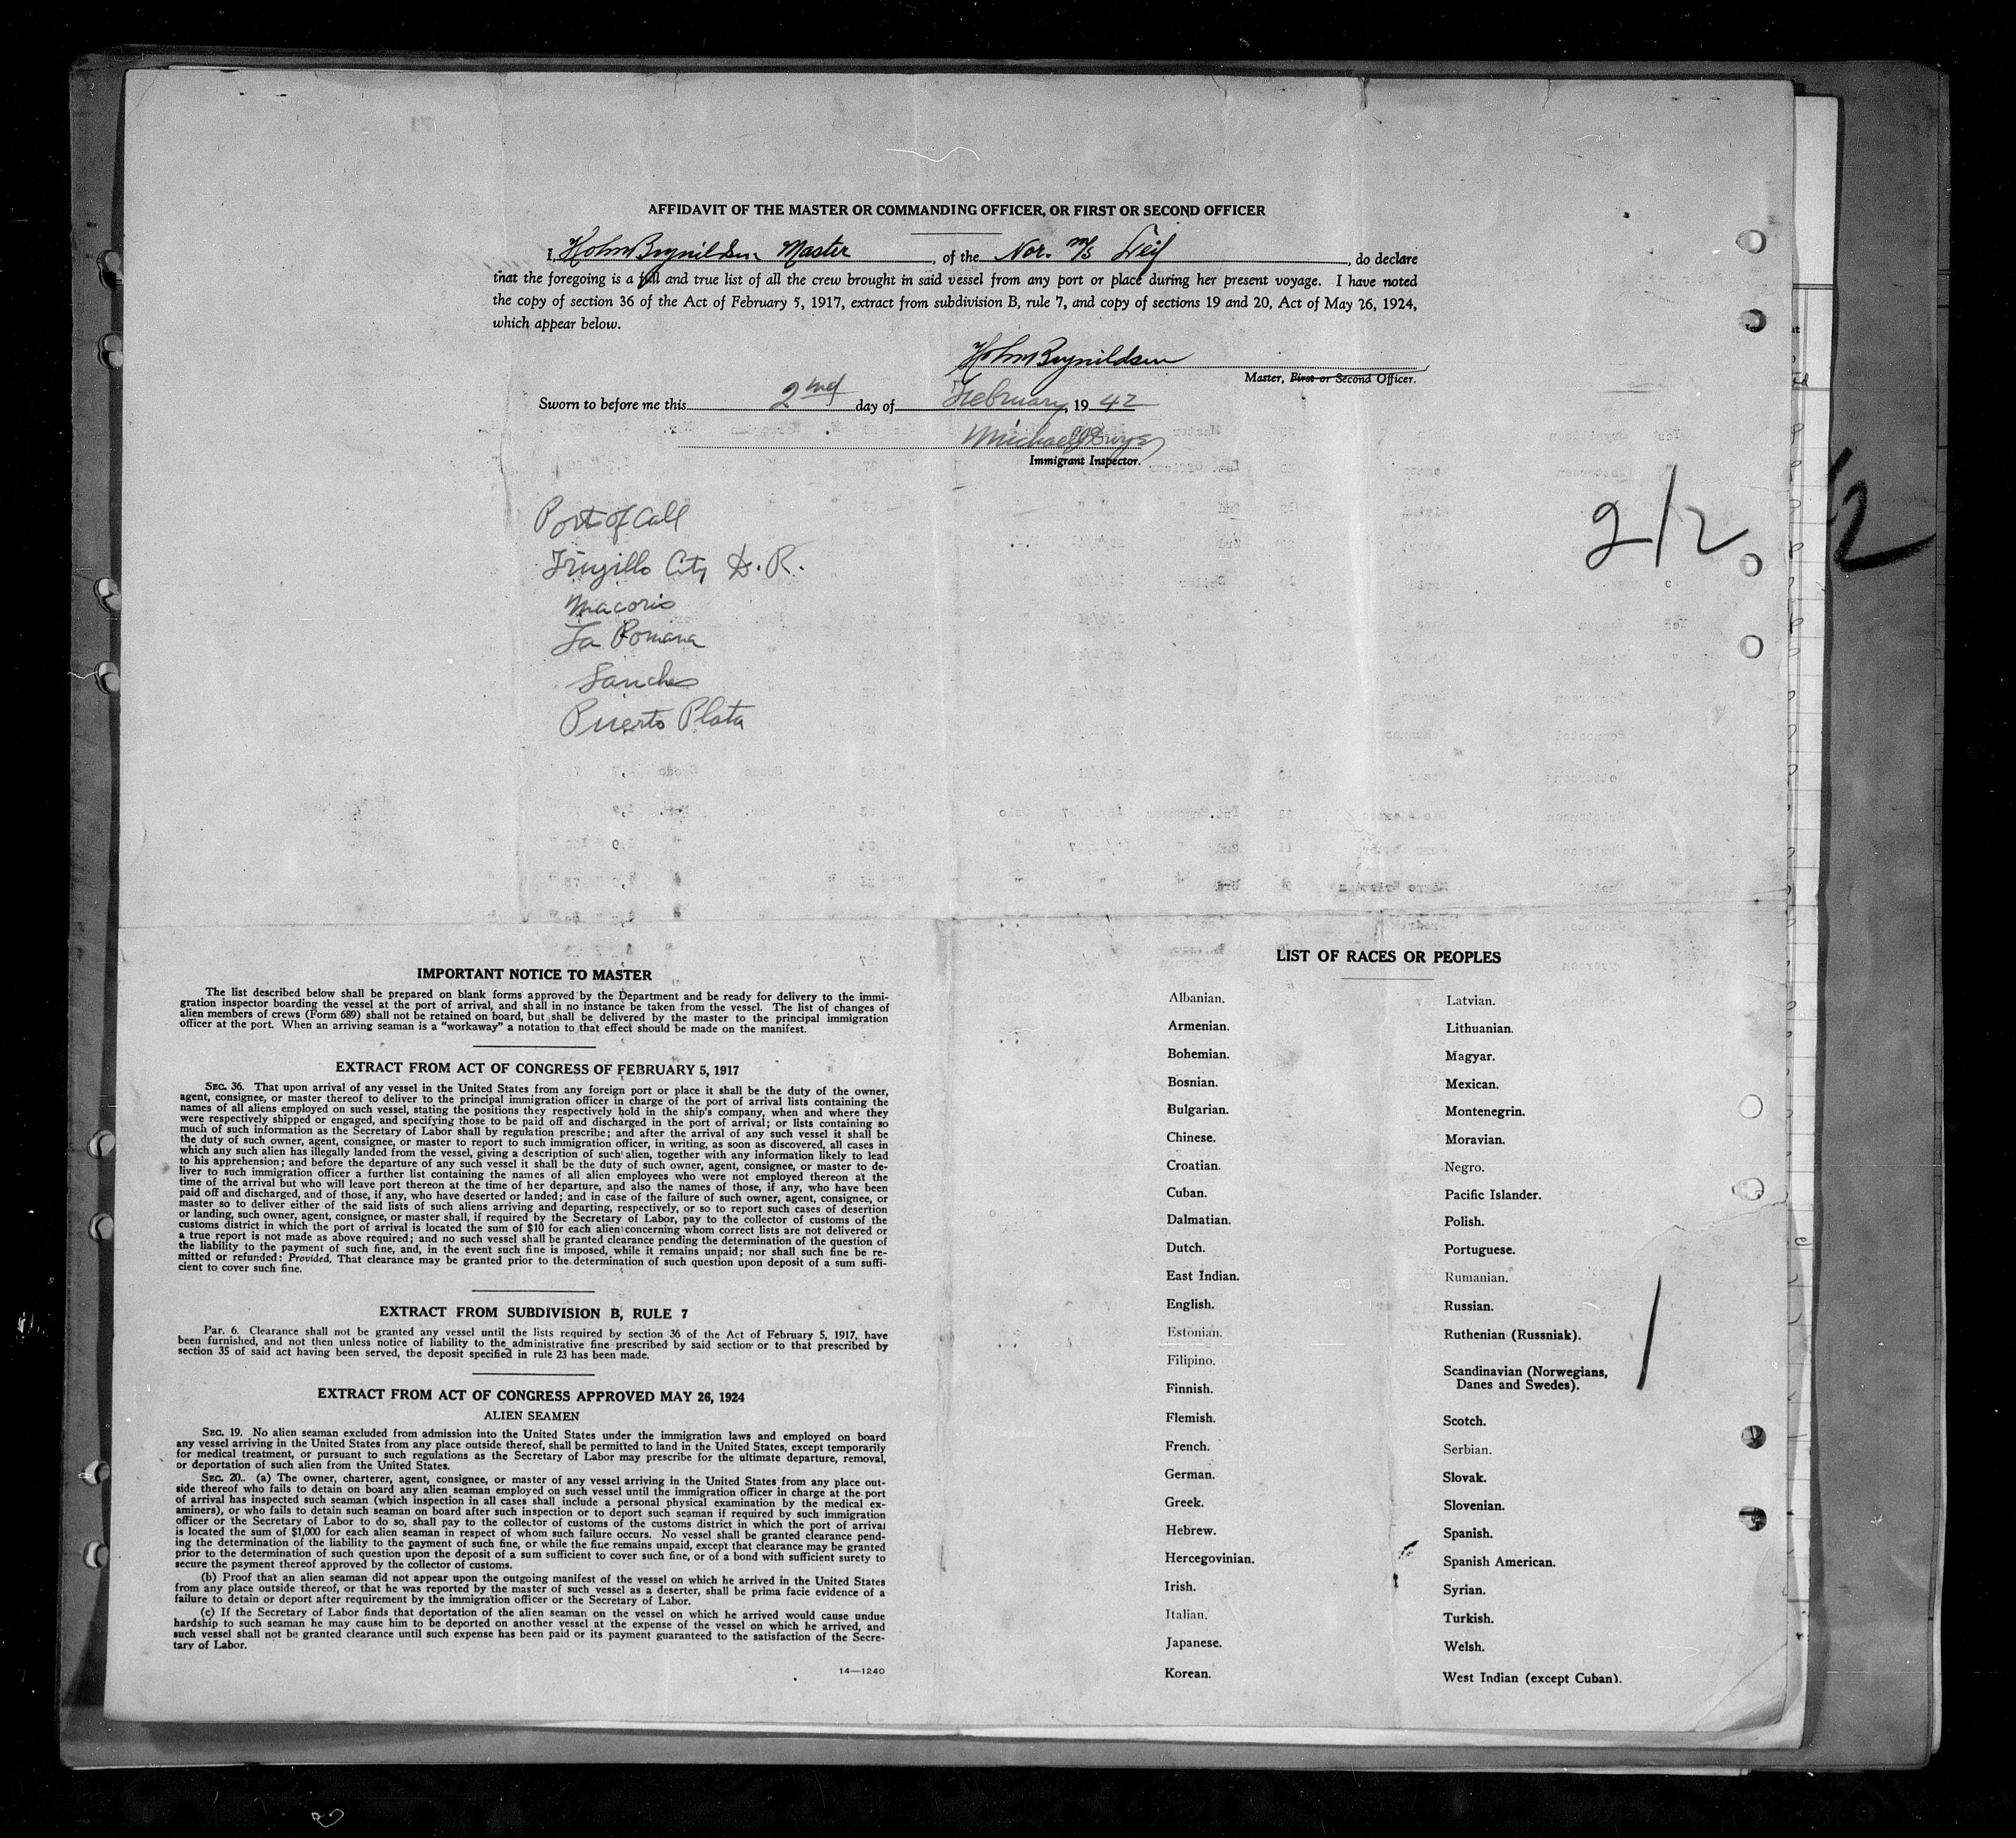 AFFIDAVIT OF THE MASTER OR COMMANDING OFFICER, OR FIRST OR SECOND OFFICER
I, Holm Brynildsen Master, of the Nor. M/S Leif, do declare
that the foregoing is a full and true list of all the crew brought in said vessel from any port or place during her present voyage. I have noted
the copy of section 36 of the Act of February 5, 1917, extract from subdivision B, rule 7, and copy of sections 19 and 20, Act of May 26, 1924,
which appear below.
Holm Brynildsen
Master, First or Second Officer.
Sworn to before me this 2nd day of February, 1942
Michael
Immigrant Inspector.
Port of Call
Trujillo City D.R.
Macoris
La Romana
Sanches
Puerto Plata
2/2
IMPORTANT NOTICE TO MASTER
The list described below shall be prepared on blank forms approved by the Department and be ready for delivery to the immi-
gration inspector boarding the vessel at the port of arrival, and shall in no instance be taken from the vessel. The list of changes of
alien members of crews (Form 689) shall not be retained on board, but shall be delivered by the master to the principal immigration
officer at the port. When an arriving seaman is a "workaway" a notation to that effect should be made on the manifest.
EXTRACT FROM ACT OF CONGRESS OF FEBRUARY 5, 1917
SEC. 36. That upon arrival of any vessel in the United States from any foreign port or place it shall be the duty of the owner,
agent, consignee, or master thereof to deliver to the principal immigration officer in charge of the port of arrival lists containing the
names of all aliens employed on such vessel, stating the positions they respectively hold in the ship's company, when and where they
were respectively shipped or engaged, and specifying those to be paid off and discharged in the port of arrival; or lists containing so
much of such information as the Secretary of Labor shall by regulation prescribe; and after the arrival of any such vessel it shall be
the duty of such owner, agent, consignee, or master to report to such immigration officer, in writing, as soon as discovered, all cases in
which any such alien has illegally landed from the vessel, giving a description of such alien, together with any information likely to lead
to his apprehension; and before the departure of any such vessel it shall be the duty of such owner, agent, consignee, or master to de-
liver to such immigration officer a further list containing the names of all alien employees who were not employed thereon at the
time of the arrival but who will leave port thereon at the time of her departure, and also the names of those, if any, who have been
paid off and discharged, and of those, if any, who have deserted or landed; and in case of the failure of such owner, agent, consignee, or
master so to deliver either of the said lists of such aliens arriving and departing, respectively, or so to report such cases of desertion
or landing, such owner, agent, consignee, or master shall, if required by the Secretary of Labor, pay to the collector of customs of the
customs district in which the port of arrival is located the sum of $10 for each alien concerning whom correct lists are not delivered or
a true report is not made as above required; and no such vessel shall be granted clearance pending the determination of the question of
the liability to the payment of such fine, and, in the event such fine is imposed, while it remains unpaid; nor shall such fine be re-
mitted or refunded: Provided, That clearance may be granted prior to the determination of such question upon deposit of a sum suffi-
cient to cover such fine.
EXTRACT FROM SUBDIVISION B, RULE 7
Par. 6. Clearance shall not be granted any vessel until the lists required by section 36 of the Act of February 5, 1917, have
been furnished, and not then unless notice of liability to the administrative fine prescribed by said section or to that prescribed by
section 35 of said act having been served, the deposit specified in rule 23 has been made.
EXTRACT FROM ACT OF CONGRESS APPROVED MAY 26, 1924
ALIEN SEAMEN
SEC. 19. No alien seaman excluded from admission into the United States under the immigration laws and employed on board
any vessel arriving in the United States from any place outside thereof, shall be permitted to land in the United States, except temporarily
for medical treatment, or pursuant to such regulations as the Secretary of Labor may prescribe for the ultimate departure, removal,
or deportation of such alien from the United States.
SEC. 20. (a) The owner, charterer, agent, consignee, or master of any vessel arriving in the United States from any place out-
side thereof who fails to detain on board any alien seaman employed on such vessel until the immigration officer in charge at the port
of arrival has inspected such seaman (which inspection in all cases shall include a personal physical examination by the medical ex-
aminers), or who fails to detain such seaman on board after such inspection or to deport such seaman if required by such immigration
officer or the Secretary of Labor to do so, shall pay to the collector of customs of the customs district in which the port of arrival
is located the sum of $1,000 for each alien seaman in respect of whom such failure occurs. No vessel shall be granted clearance pend-
ing the determination of the liability to the payment of such fine, or while the fine remains unpaid, except that clearance may be granted
prior to the determination of such question upon the deposit of a sum sufficient to cover such fine, or of a bond with sufficient surety to
secure the payment thereof approved by the collector of customs.
(b) Proof that an alien seaman did not appear upon the outgoing manifest of the vessel on which he arrived in the United States
from any place outside thereof, or that he was reported by the master of such vessel as a deserter, shall be prima facie evidence of a
failure to detain or deport after requirement by the immigration officer or the Secretary of Labor.
(c) If the Secretary of Labor finds that deportation of the alien seaman on the vessel on which he arrived would cause undue
hardship to such seaman he may cause him to be deported on another vessel at the expense of the vessel on which he arrived, and
such vessel shall not be granted clearance until such expense has been paid or its payment guaranteed to the satisfaction of the Secre-
tary of Labor.
14—1240
LIST OF RACES OR PEOPLES
Albanian.
Armenian.
Bohemian.
Bosnian.
Bulgarian.
Chinese.
Croatian.
Cuban.
Dalmatian.
Dutch.
East Indian.
English.
Estonian.
Filipino.
Finnish.
Flemish.
French.
German.
Greek.
Hebrew.
Hercegovinian.
Irish.
Italian.
Japanese.
Korean.
Latvian.
Lithuanian.
Magyar.
Mexican.
Montenegrin.
Moravian.
Negro.
Pacific Islander.
Polish.
Portuguese.
Rumanian.
Russian.
Ruthenian (Russniak).
Scandinavian (Norwegians,
Danes and Swedes).
Scotch.
Serbian.
Slovak.
Slovenian.
Spanish.
Spanish American.
Syrian.
Turkish.
Welsh.
West Indian (except Cuban).